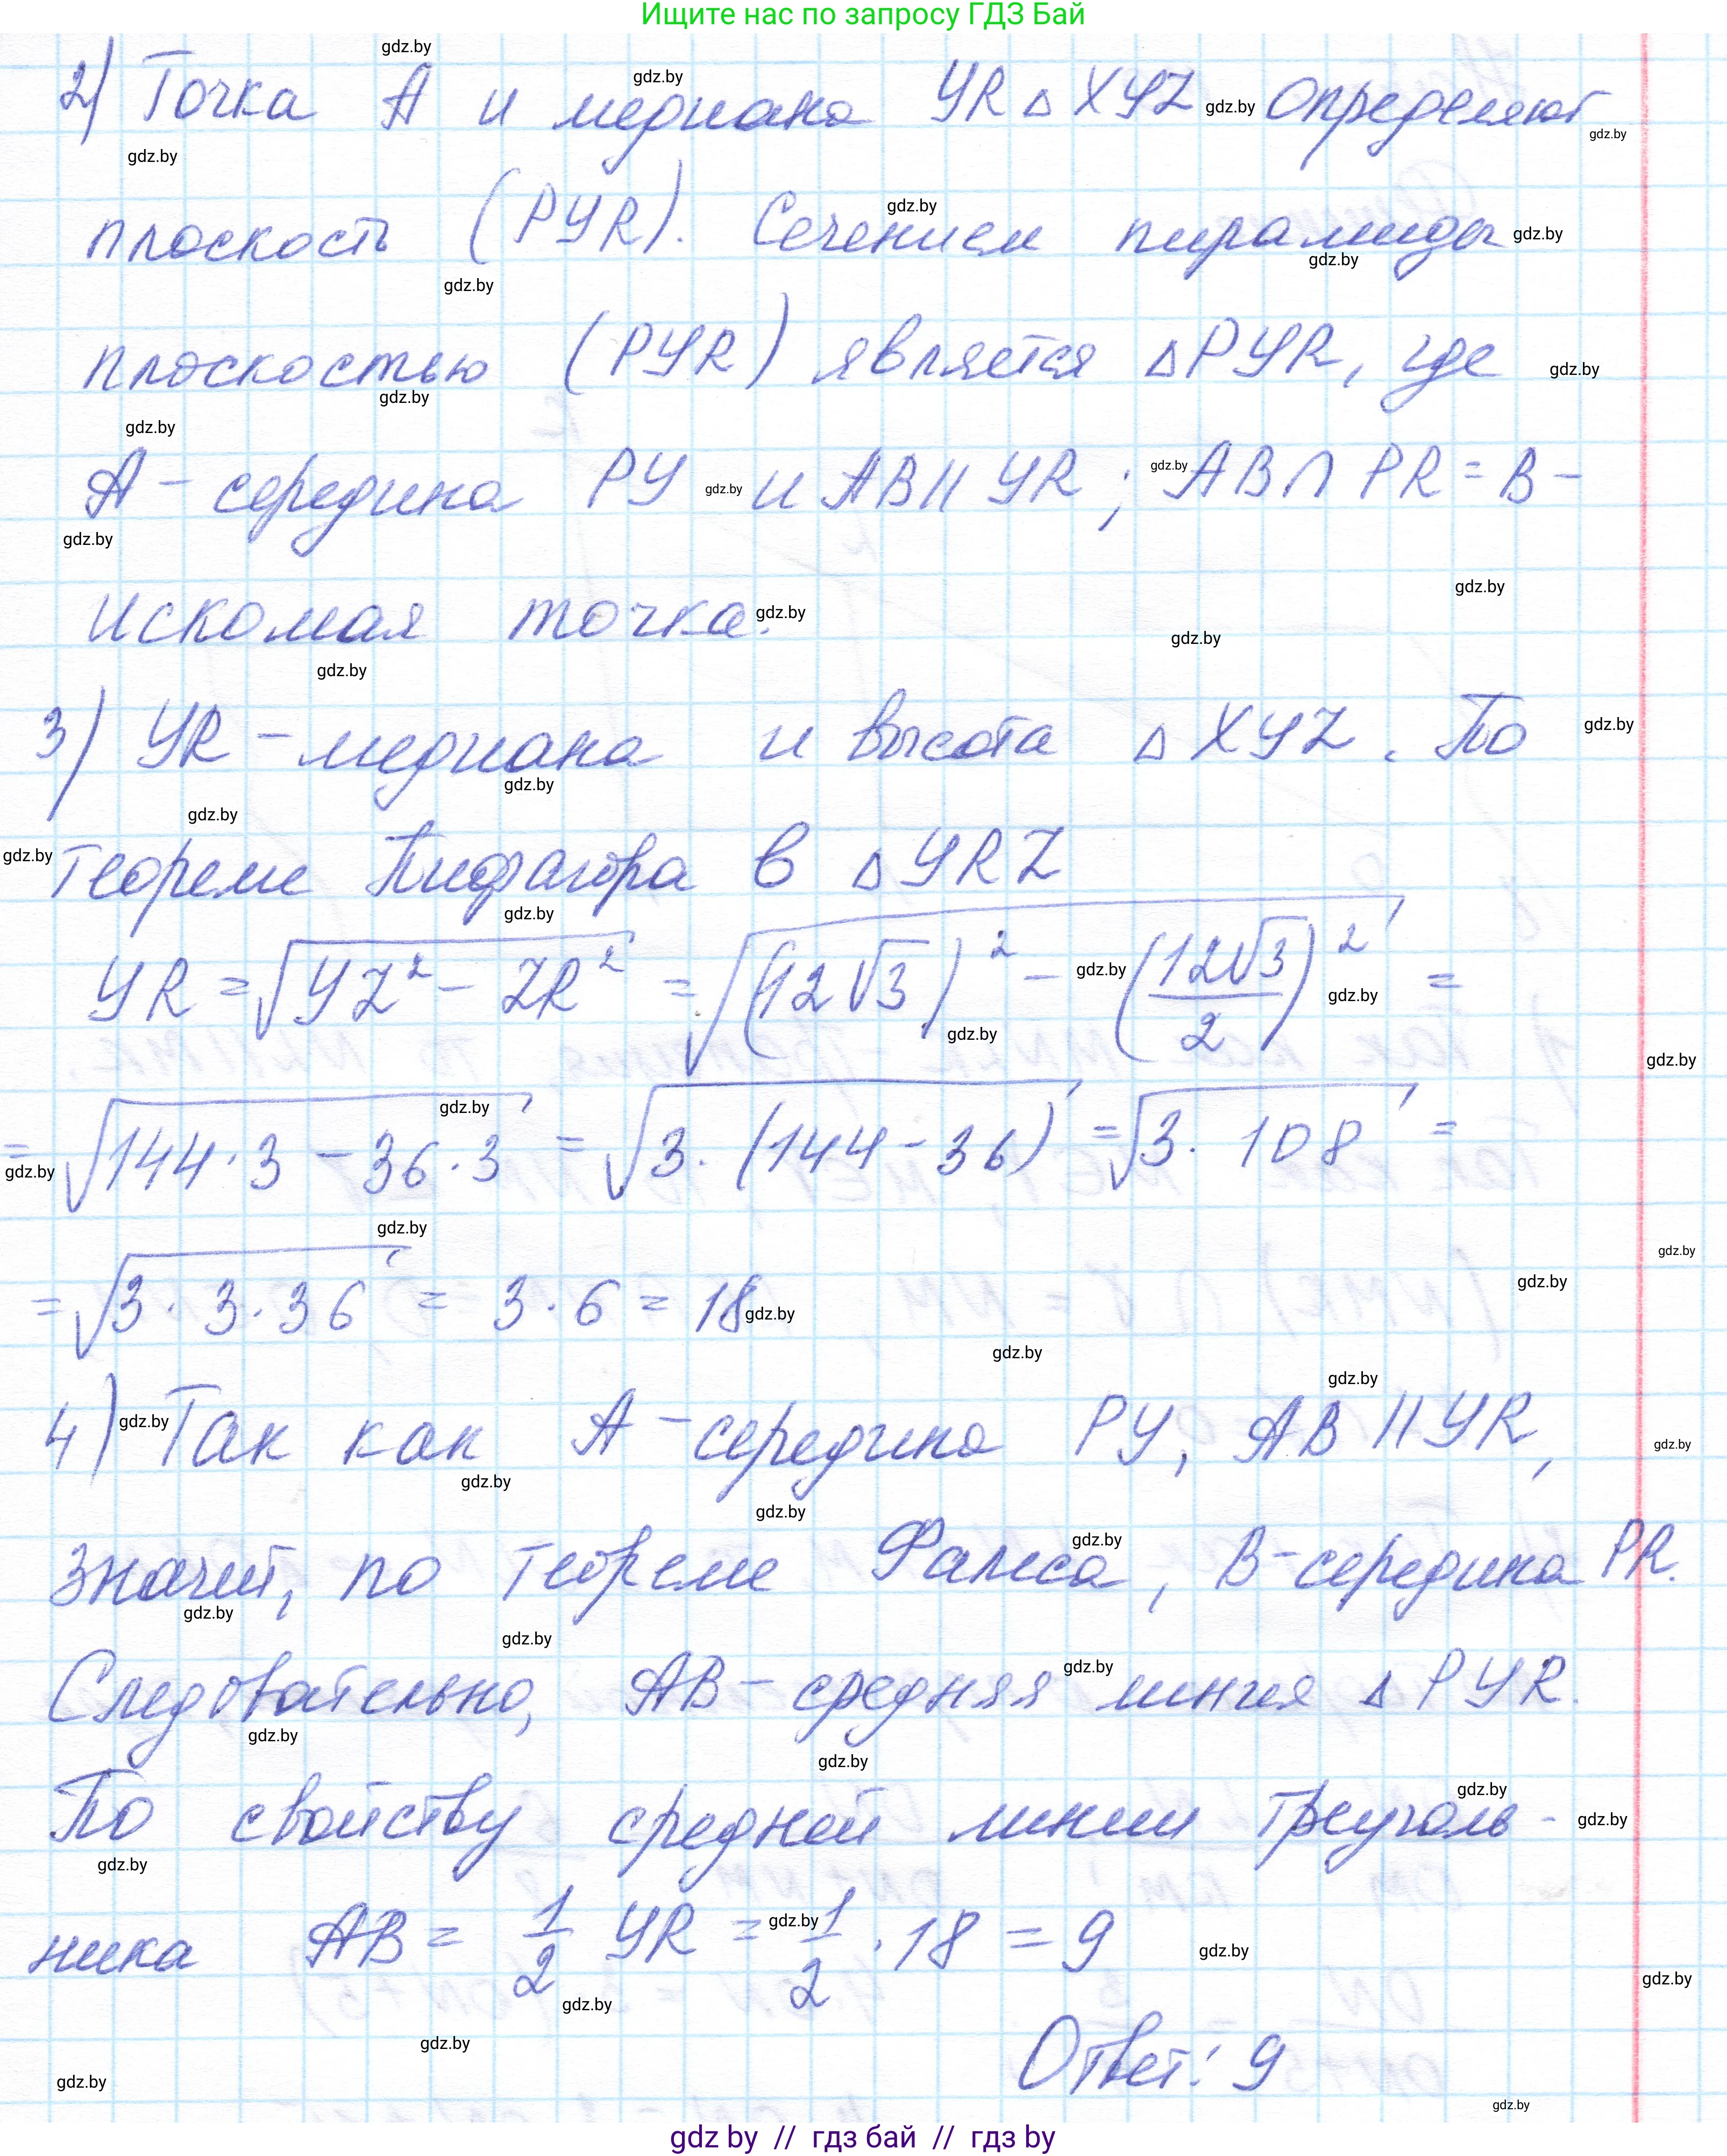 Ищите нас по запросу ГДЗ Бай
2) Точка A и медиана YR △ XYZ определяют
плоскость (PYR). Сечением пирамиды
плоскостью (PYR) является △PYR, где
A - середина PY и AB || YR ; AB ∩ PR = B -
искомая точка.
3) YR - медиана и высота △ XYZ. По
теореме Пифагора в △ YRZ
YR = √(YZ² - ZR²) = √((12√3)² - (12√3/2)²) =
= √(144·3 - 36·3) = √(3·(144 - 36)) = √(3·108) =
= √(3·3·36) = 3·6 = 18
4) Так как A - середина PY, AB || YR,
значит, по теореме Фалеса, B - середина PR.
Следовательно, AB - средняя линия △ PYR.
По свойству средней линии треуголь-
ника AB = 1/2 YR = 1/2 · 18 = 9
Ответ: 9
gdz by // гдз бай // гдз by